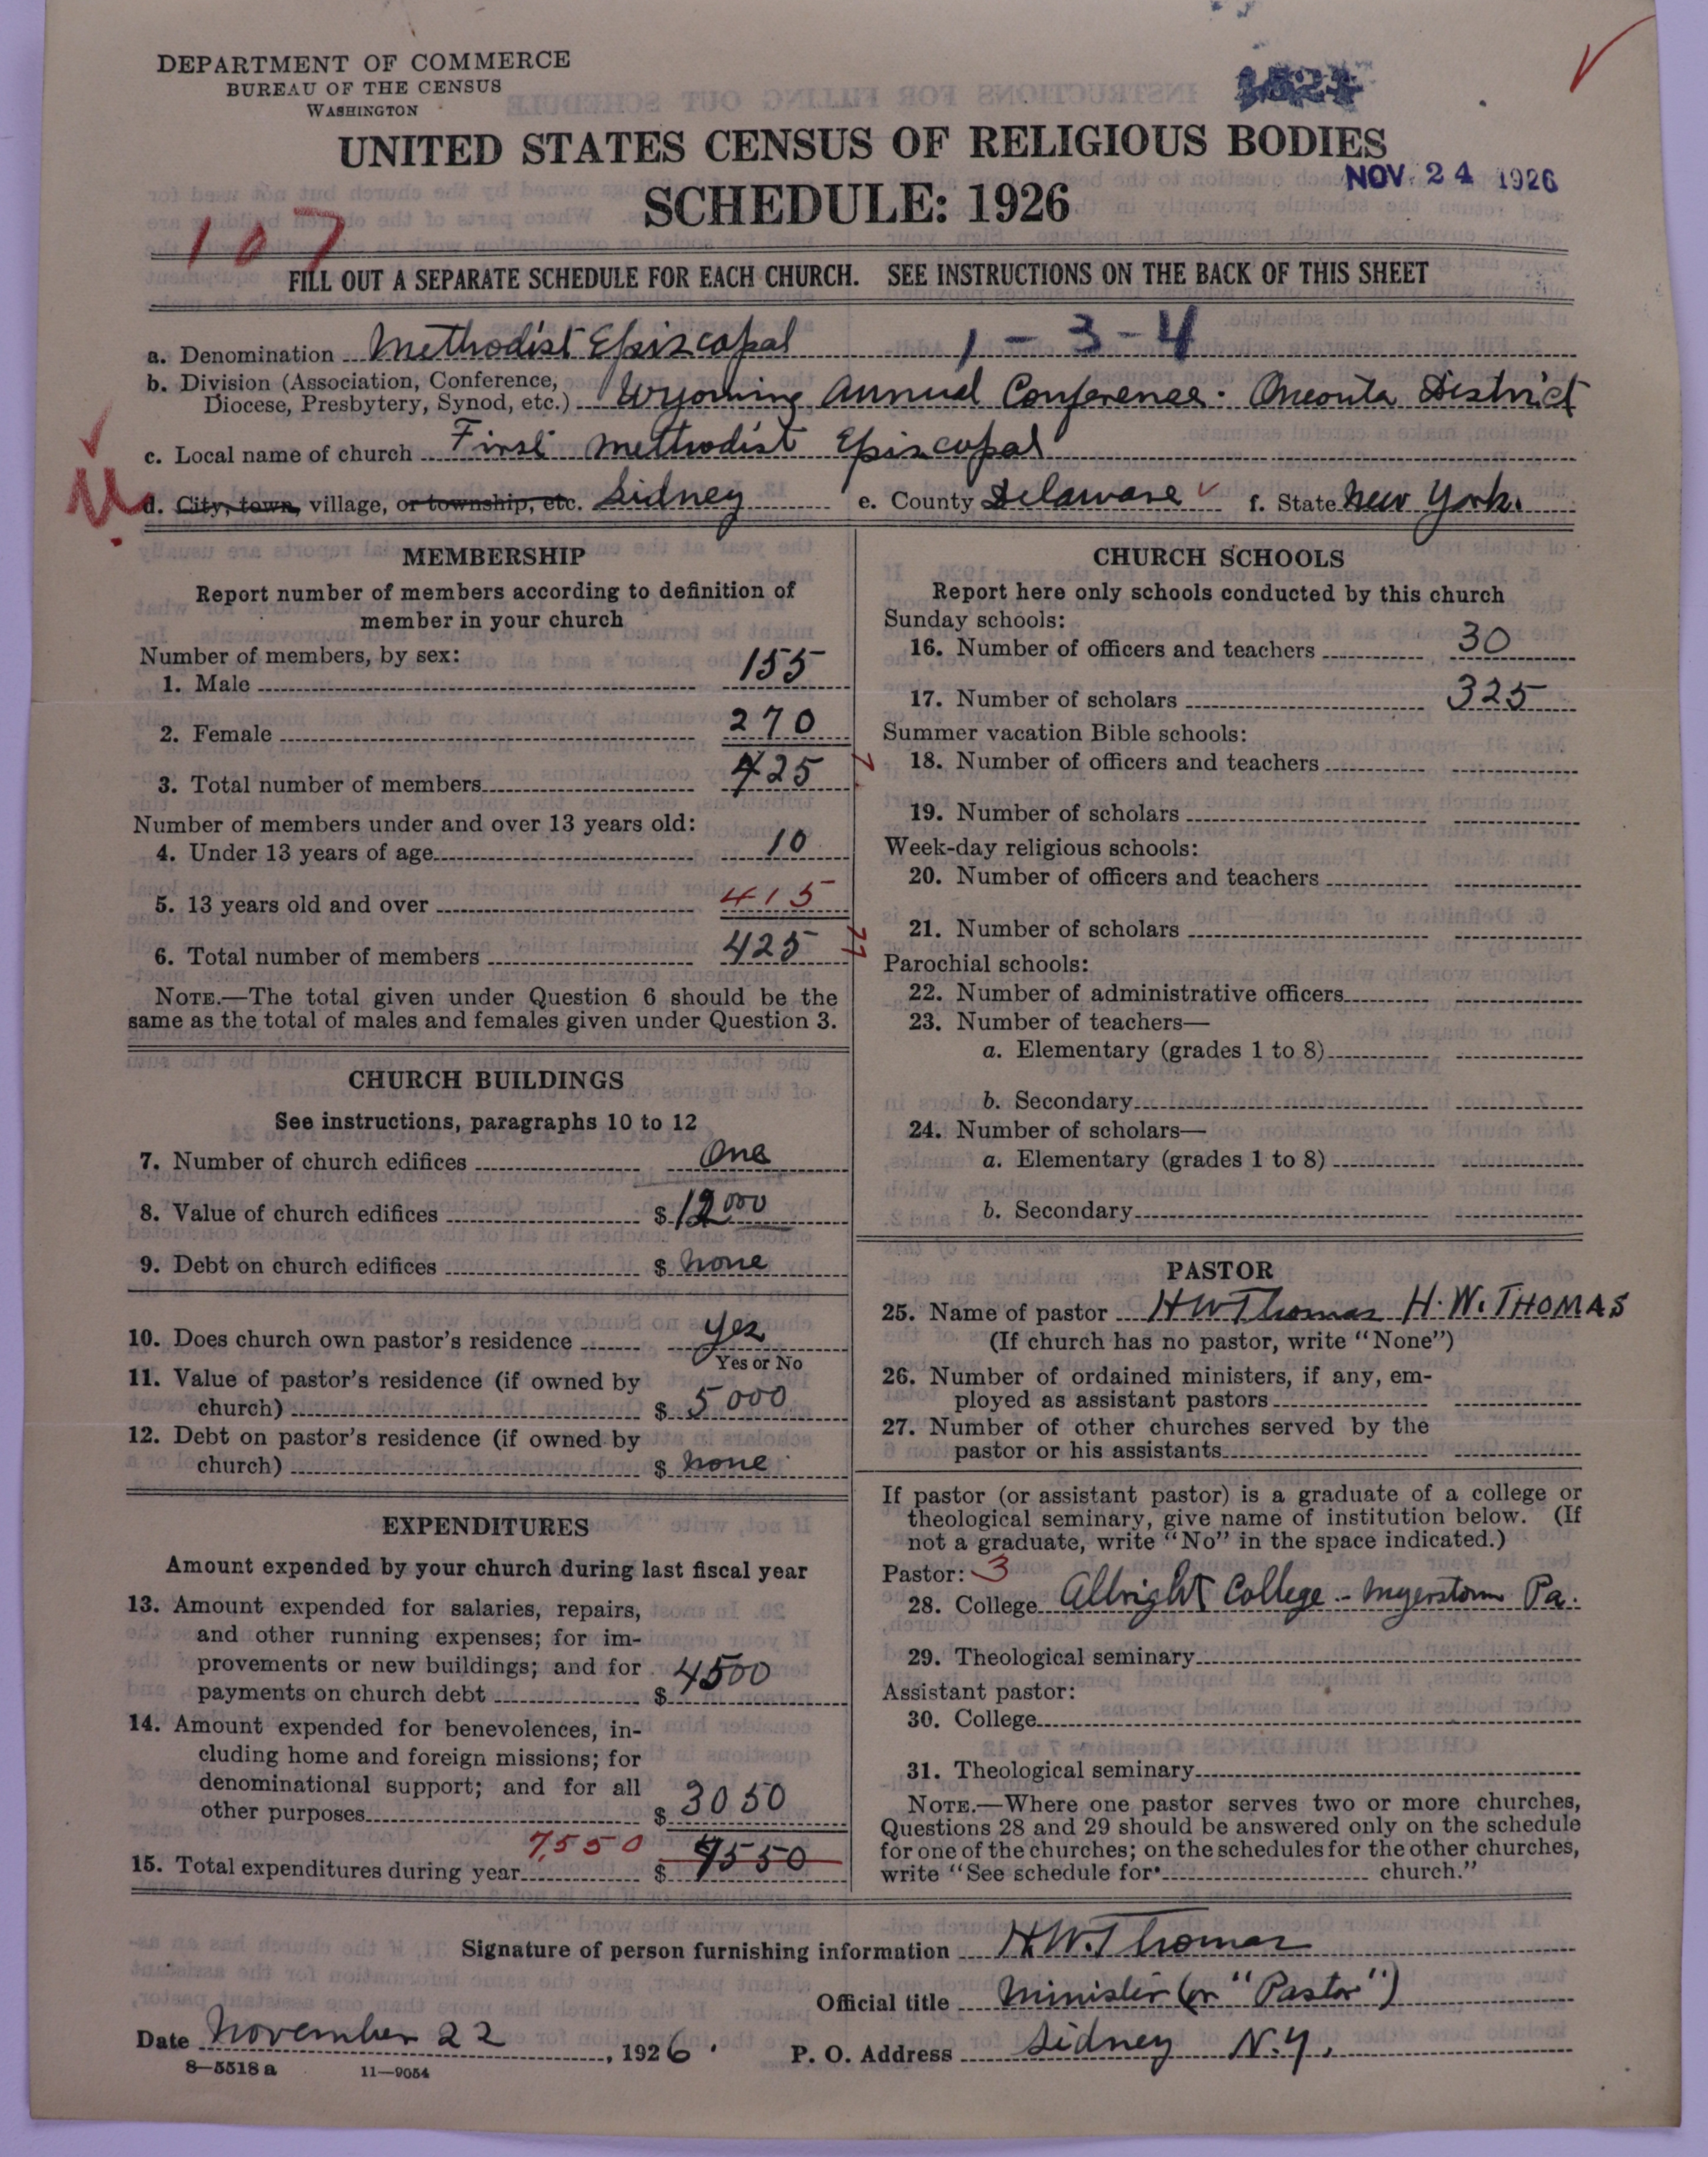 DEPARTMENT OF COMMERCE
BUREAU OF THE CENSUS
WASHINGTON
UNITED STATES CENSUS OF RELIGIOUS BODIES
NOV. 24 1926
SCHEDULE: 1926
107
FILL OUT A SEPARATE SCHEDULE FOR EACH CHURCH. SEE INSTRUCTIONS ON THE BACK OF THIS SHEET
a. Denomination Methodist Episcopal 1-3-4
b. Division (Association, Conference, Diocese, Presbytery, Synod, etc.) Wyoming Annual Conference. Oneonta District
c. Local name of church First Methodist Episcopal
d. City, town, village, or township, etc. Sidney e. County Delaware f. State New York.
MEMBERSHIP
Report number of members according to definition of
member in your church
Number of members, by sex:
1. Male 155
2. Female 270
3. Total number of members 425
Number of members under and over 13 years old:
4. Under 13 years of age 10
5. 13 years old and over 415
6. Total number of members 425
NOTE.—The total given under Question 6 should be the
same as the total of males and females given under Question 3.
CHURCH BUILDINGS
See instructions, paragraphs 10 to 12
7. Number of church edifices One
8. Value of church edifices $ 12000
9. Debt on church edifices $ none
10. Does church own pastor's residence yes
Yes or No
11. Value of pastor's residence (if owned by
church) $ 5000
12. Debt on pastor's residence (if owned by
church) $ none
EXPENDITURES
Amount expended by your church during last fiscal year
13. Amount expended for salaries, repairs,
and other running expenses; for im-
provements or new buildings; and for
payments on church debt $ 4500
14. Amount expended for benevolences, in-
cluding home and foreign missions; for
denominational support; and for all
other purposes $ 3050
7,550
15. Total expenditures during year $ 9550
CHURCH SCHOOLS
Report here only schools conducted by this church
Sunday schools:
16. Number of officers and teachers 30
17. Number of scholars 325
Summer vacation Bible schools:
18. Number of officers and teachers
19. Number of scholars
Week-day religious schools:
20. Number of officers and teachers
21. Number of scholars
Parochial schools:
22. Number of administrative officers
23. Number of teachers—
a. Elementary (grades 1 to 8)
b. Secondary
24. Number of scholars—
a. Elementary (grades 1 to 8)
b. Secondary
PASTOR
25. Name of pastor HWThomas H. W. THOMAS
(If church has no pastor, write "None")
26. Number of ordained ministers, if any, em-
ployed as assistant pastors
27. Number of other churches served by the
pastor or his assistants
If pastor (or assistant pastor) is a graduate of a college or
theological seminary, give name of institution below. (If
not a graduate, write "No" in the space indicated.)
Pastor: 3
28. College Albright College - Myerstown Pa.
29. Theological seminary
Assistant pastor:
30. College
31. Theological seminary
NOTE.—Where one pastor serves two or more churches,
Questions 28 and 29 should be answered only on the schedule
for one of the churches; on the schedules for the other churches,
write "See schedule for church."
Signature of person furnishing information H.W.Thomas
Official title Minister (or "Pastor")
Date November 22, 1926. P. O. Address Sidney N.Y.
8—5518 a 11—9054